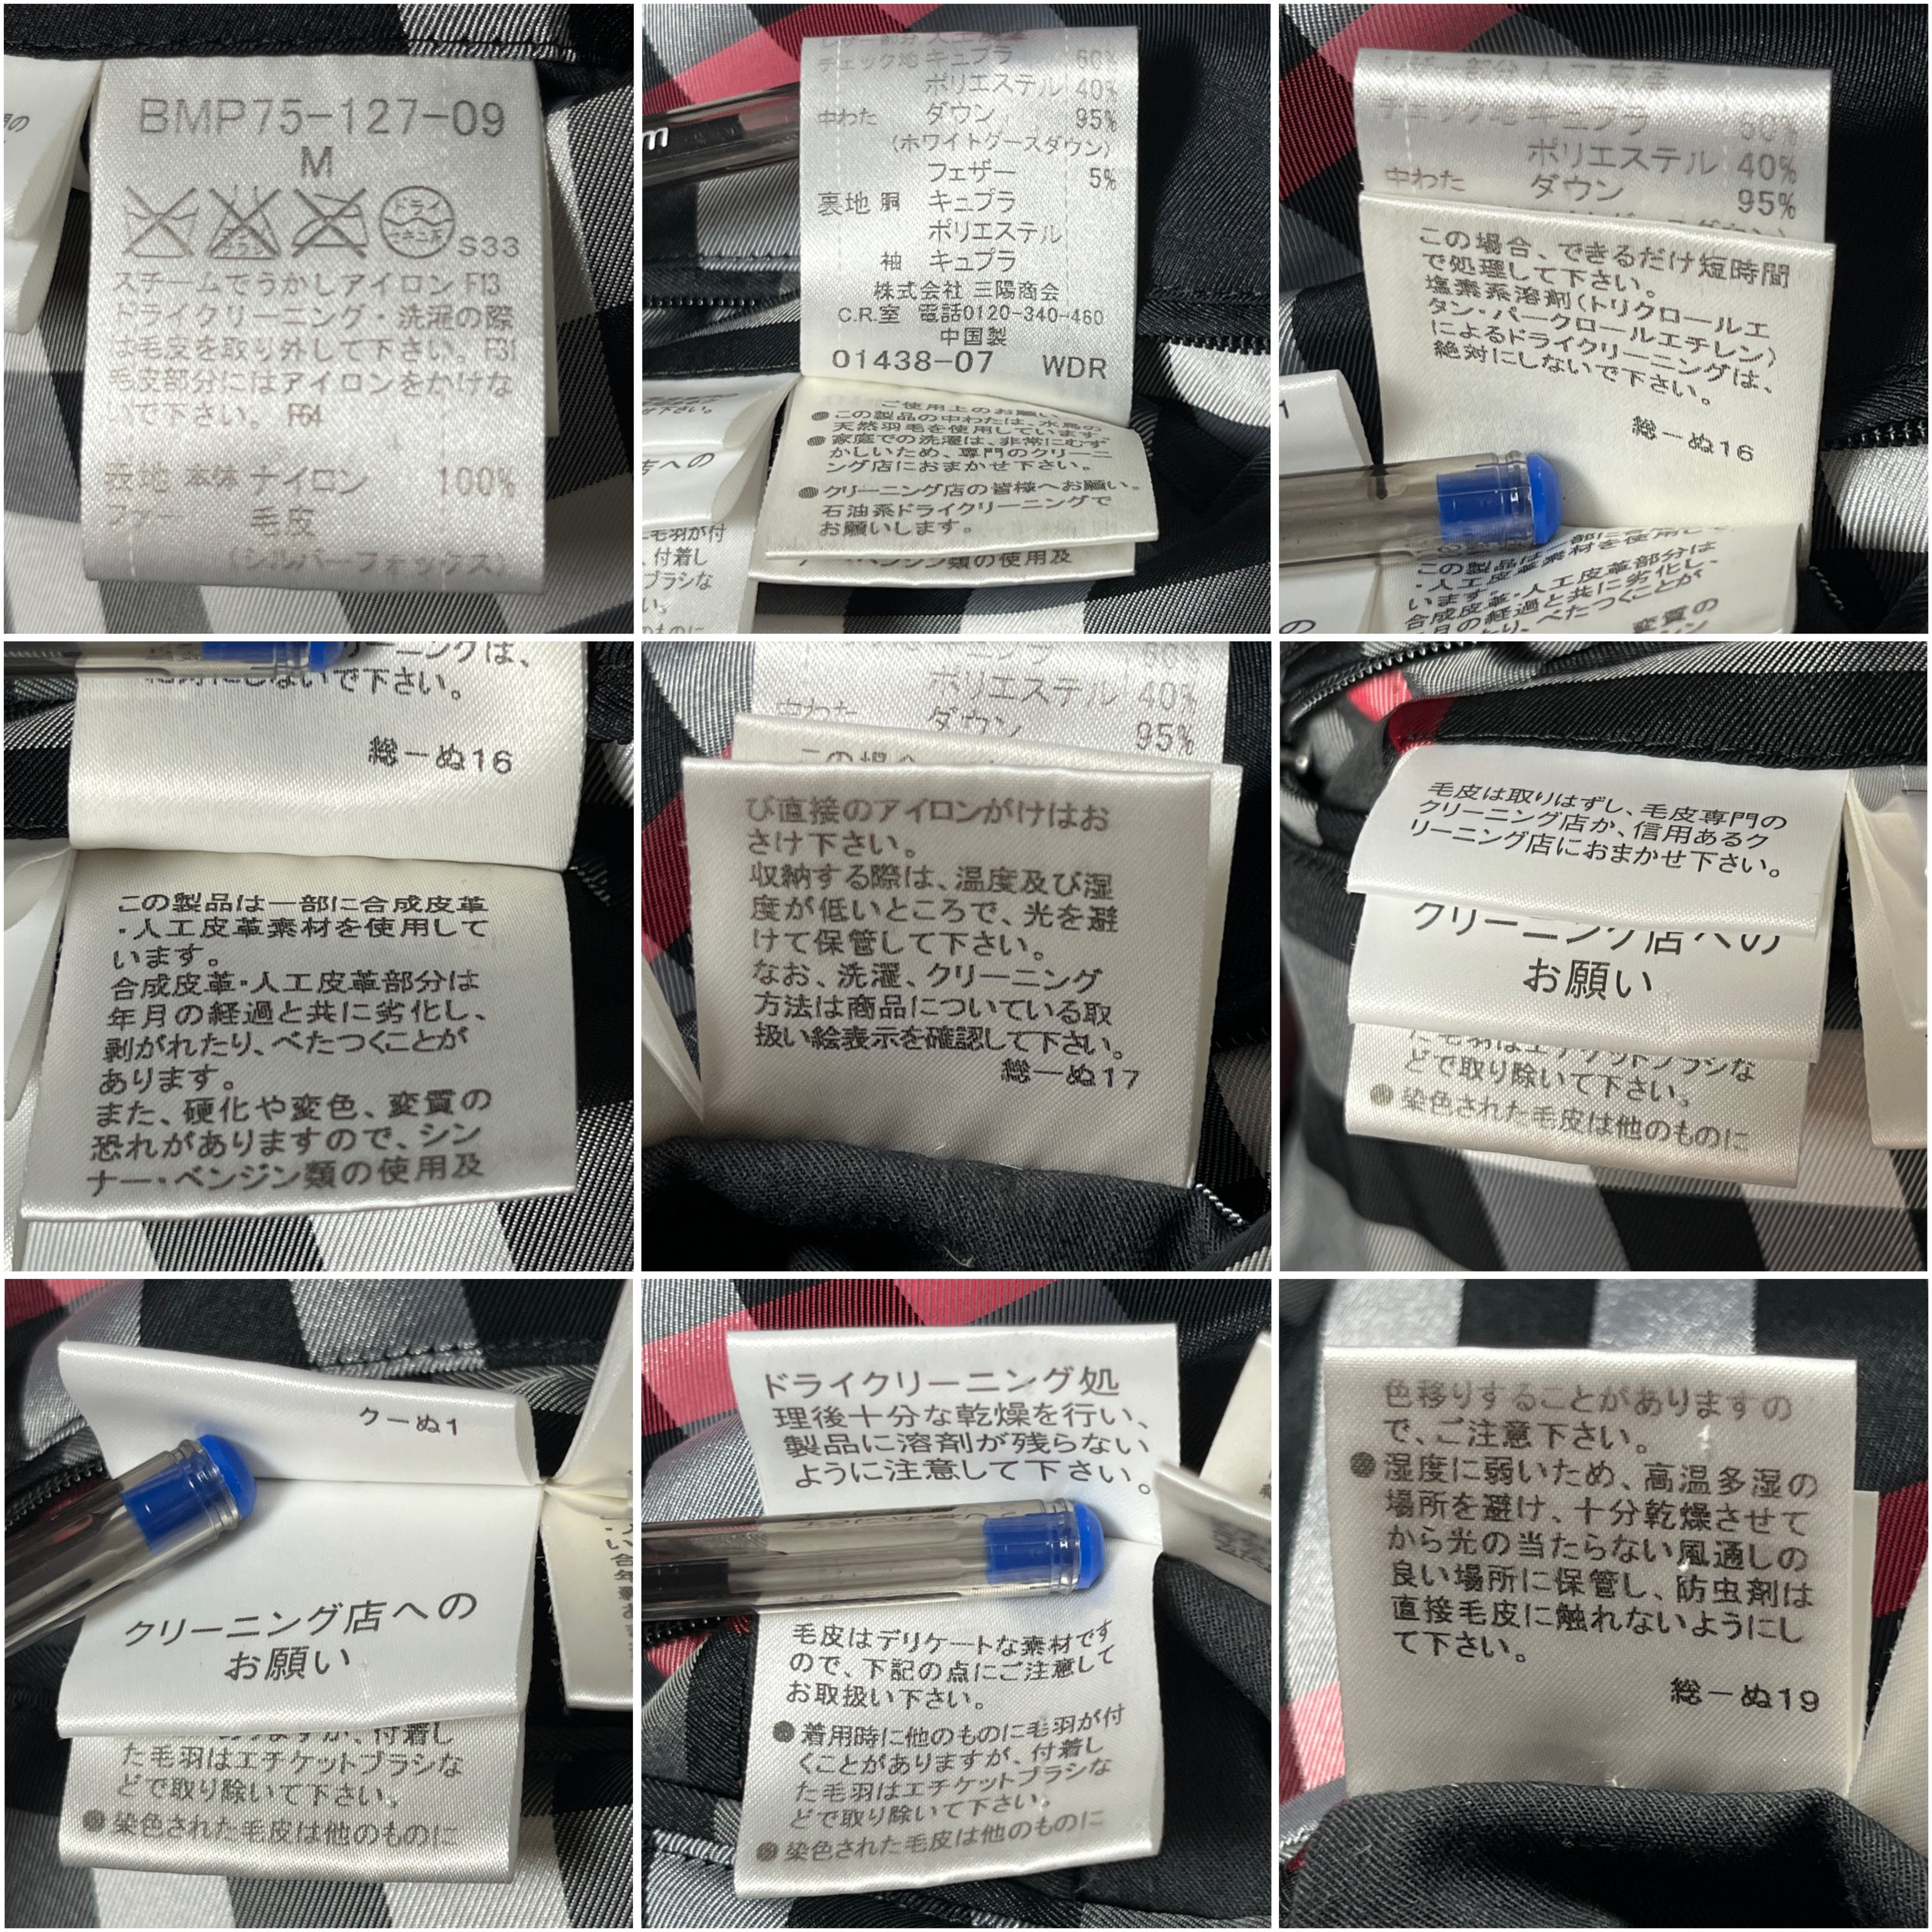 BMP75-127-09
M
ドライ
セキユ系
S33
スチームでうかしアイロン F13
ドライクリーニング・洗濯の際
は毛皮を取り外して下さい。F31
毛皮部分にはアイロンをかけな
いで下さい。F64
表地 本体 ナイロン 100%
ファー 毛皮
(シルバーフォックス)
チェック地 キュプラ 60%
ポリエステル 40%
中わた ダウン 95%
(ホワイトグースダウン)
フェザー 5%
裏地 胴 キュプラ
ポリエステル
袖 キュプラ
株式会社 三陽商会
C.R.室 電話0120-340-460
中国製
01438-07 WDR
ご使用上のお願い
●この製品の中わたは、水鳥の
天然羽毛を使用しています。
●家庭での洗濯は、非常にむず
かしいため、専門のクリーニ
ング店におまかせ下さい。
●クリーニング店の皆様へお願い。
石油系ドライクリーニングで
お願いします。
ナー・ベンジン類の使用及
店への
毛羽が付
、付着し
ブラシな
い。
のものに
レザー部分 人工皮革
チェック地 キュプラ 60%
ポリエステル 40%
中わた ダウン 95%
この場合、できるだけ短時間
で処理して下さい。
塩素系溶剤(トリクロールエ
タン・パークロールエチレン)
によるドライクリーニングは、
絶対にしないで下さい。
総ーぬ16
この製品は一部に合成
・人工皮革素材を使用して
います。
合成皮革・人工皮革部分は
年月の経過と共に劣化し、
たり、べたつくことが
変質の
ーニングは、
絶対にしないで下さい。
総ーぬ16
この製品は一部に合成皮革
・人工皮革素材を使用して
います。
合成皮革・人工皮革部分は
年月の経過と共に劣化し、
剥がれたり、べたつくことが
あります。
また、硬化や変色、変質の
恐れがありますので、シン
ナー・ベンジン類の使用及
ポリエステル 40%
中わた ダウン 95%
この場合
び直接のアイロンがけはお
さけ下さい。
収納する際は、温度及び湿
度が低いところで、光を避
けて保管して下さい。
なお、洗濯、クリーニング
方法は商品についている取
扱い絵表示を確認して下さい。
総ーぬ17
毛皮は取りはずし、毛皮専門の
クリーニング店か、信用あるク
リーニング店におまかせ下さい。
クリーニング店への
お願い
た毛羽はエチケットブラシな
どで取り除いて下さい。
●染色された毛皮は他のものに
クーぬ1
クリーニング店への
お願い
ありますが、付着し
た毛羽はエチケットブラシな
どで取り除いて下さい。
●染色された毛皮は他のものに
ドライクリーニング処
理後十分な乾燥を行い、
製品に溶剤が残らない
ように注意して下さい。
毛皮はデリケートな素材です
ので、下記の点にご注意して
お取扱い下さい。
●着用時に他のものに毛羽が付
くことがありますが、付着し
た毛羽はエチケットブラシな
どで取り除いて下さい。
●染色された毛皮は他のものに
色移りすることがありますの
で、ご注意下さい。
●湿度に弱いため、高温多湿の
場所を避け、十分乾燥させて
から光の当たらない風通しの
良い場所に保管し、防虫剤は
直接毛皮に触れないようにし
て下さい。
総ーぬ19